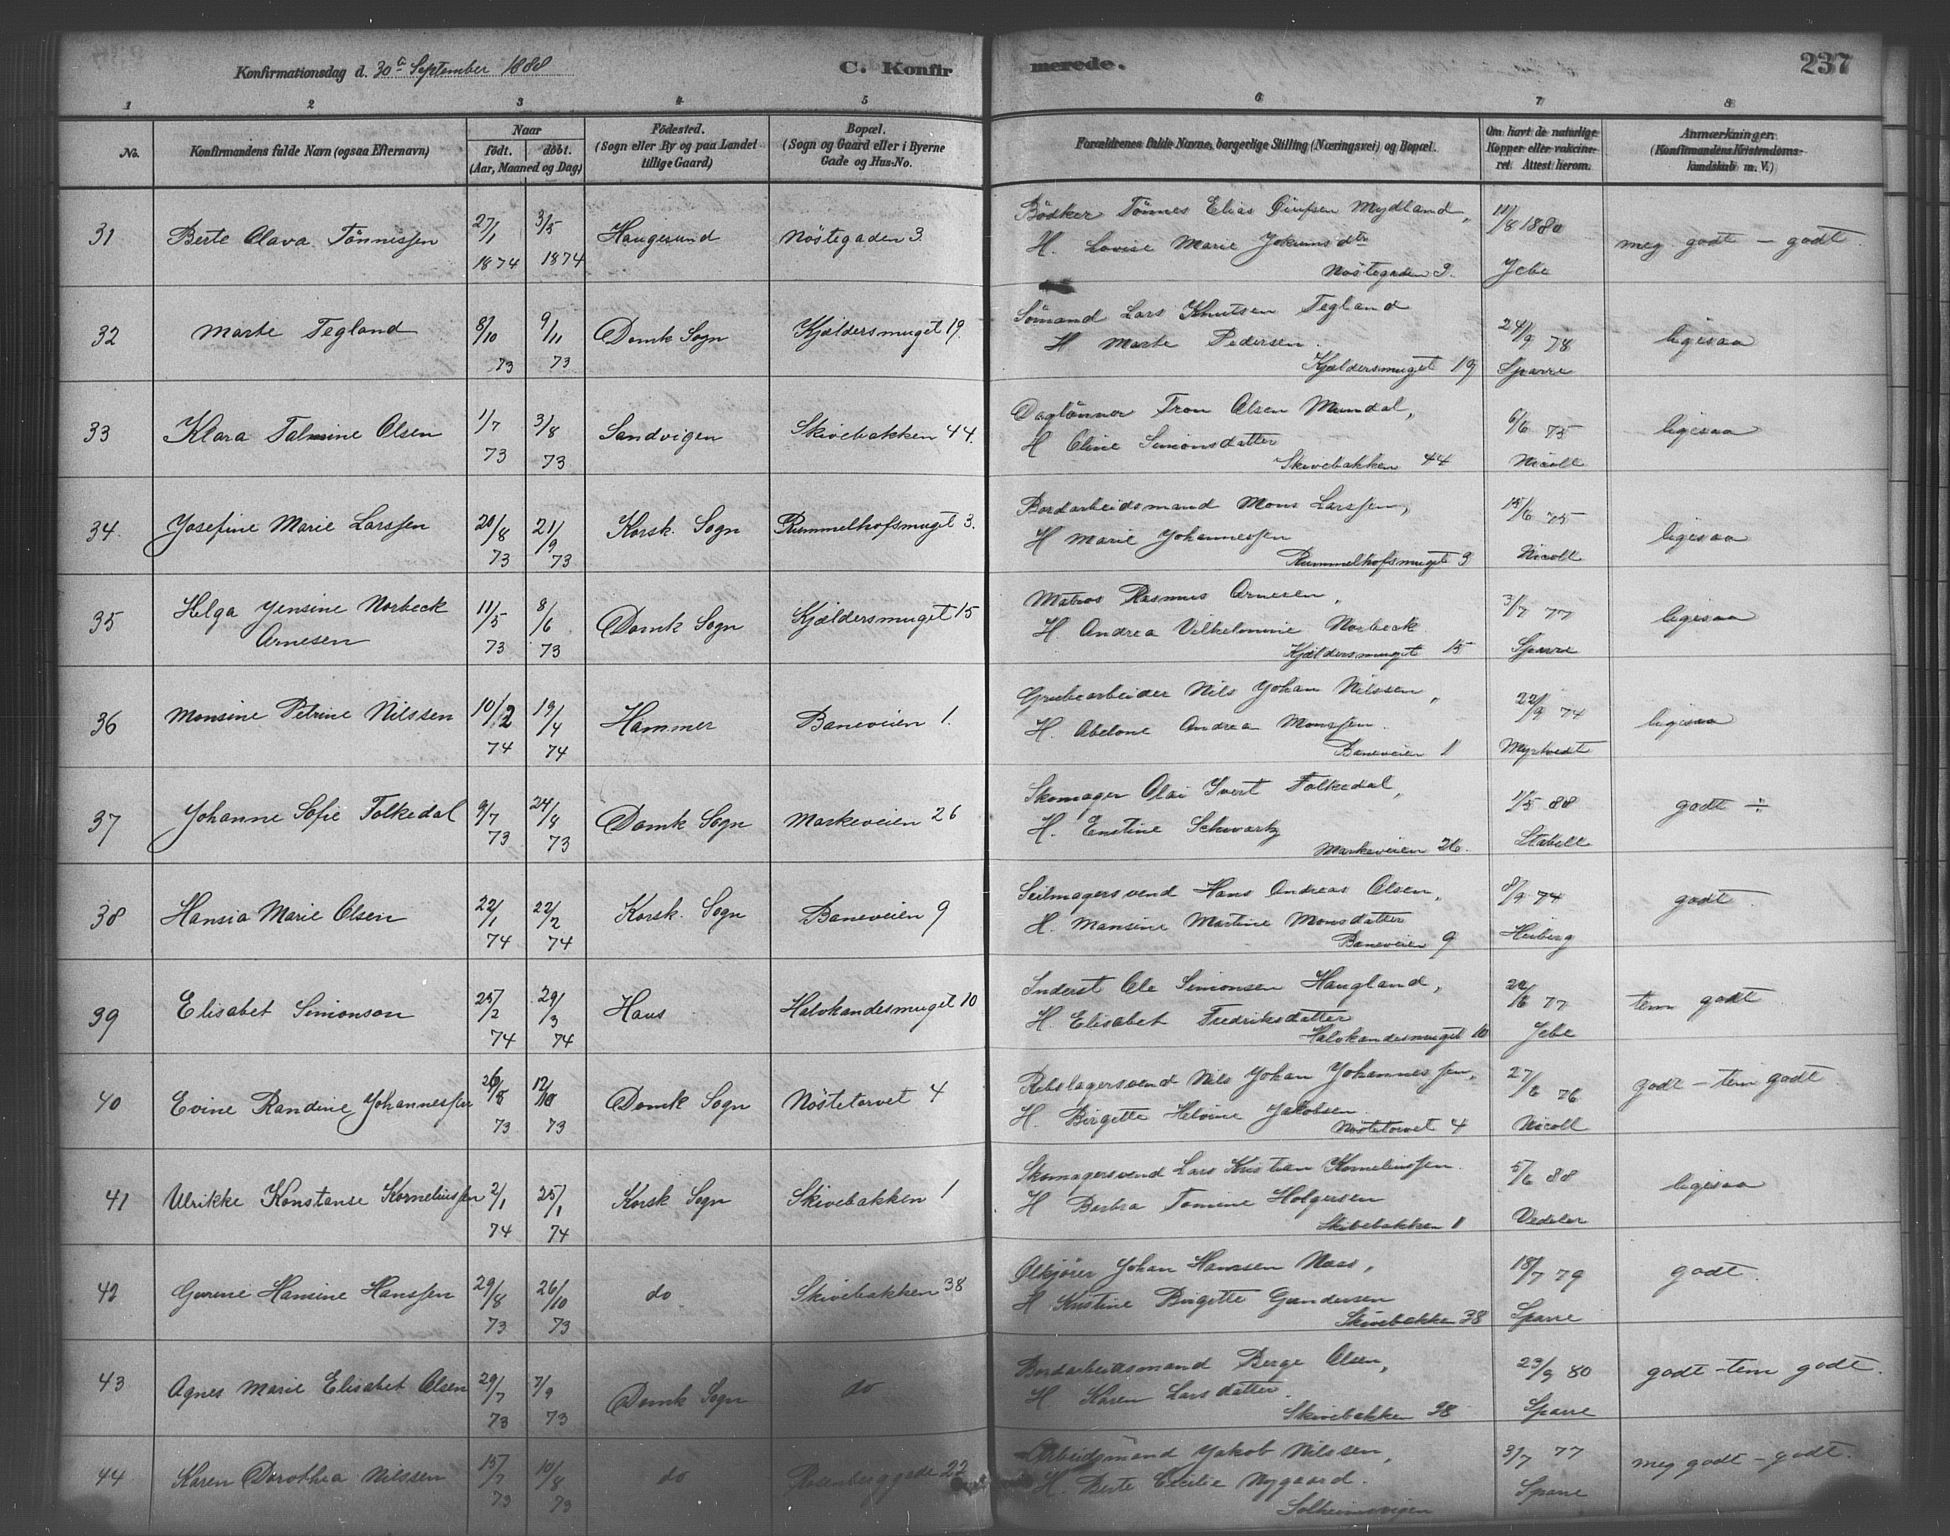 Konfirmationsdag d. 30te September 1888
C. Konfirmerede.
237
1 2 3 4 5 6 7 8
No.
Konfirmandens fulde Navn (ogsaa Efternavn)
Naar
født. døbt.
(Aar, Maaned og Dag)
Fødested.
(Sogn eller By og paa Landet
tillige Gaard)
Bopæl.
(Sogn og Gaard eller i Byerne
Gade og Hus-No.
Forældrenes fulde Navne, borgerlige Stilling (Næringsvei) og Bopæl.
Om havt de naturlige
Kopper eller vaccine-
ret. Attest herom.
Anmærkninger.
(Konfirmandens Kristendoms-
kundskab m. V.)
31 Berte Olava Tönnessen 27/1 1874 3/5 1874 Haugesund Nöstegaden 3.
Bödker Tönnes Elias Mydland,
H. Lovise Marie Jokumsdtr
Nöstegaden 3.
11/8 1880
Jebe
meg godt – godt.
32 Marte Tegland 8/10 73 9/11 73 Domk Sogn Kjældersmuget 19.
Sömand Lars Knutsen Tegland
H Marte Pedersen.
Kjældersmuget 19
24/9 78
Sparre
ligesaa
33 Klara Talmine Olsen 1/7 73 3/8 73 Sandvigen Skivebakken 44.
Daglönner Tron Olsen Mundal,
H Oline Simonsdatter
Skivebakken 44
6/6 75
Nicoll
ligesaa
34. Josefine Marie Larssen 20/8 73 21/9 73 Korsk. Sogn Rummelhofsmuget 3.
Bordarbeidsmand Mons Larssen,
H Marie Johannessen
Rummelhofsmuget 3
15/6 75
Nicoll
ligesaa
35 Helga Jensine Norbeck
Arnesen 11/5 73 8/6 73 Domk Sogn Kjældersmuget 15
Matros Rasmus Arnesen,
H Andrea Vilhelmine Norbeck
Kjældersmuget 15
3/7 77
Sparre
ligesaa
36 Monsine Petrine Nilssen 10/2 74 19/4 74 Hammer Baneveien 1.
Grubearbeider Nils Johan Nilssen,
H. Abelone Andrea Monssen.
Baneveien 1
22/9 74
Myrtvedt
ligesaa
37 Johanne Sofie Folkedal 9/7 73 24/8 73 Domk Sogn Markeveien 26
Skomager Olai Ivert Folkedal,
H. Enstine Schwartz
Markeveien 26.
1/5 88
Stabell
godt ÷
38 Hansia Marie Olsen 22/1 74 22/2 74 Korsk. Sogn Baneveien 9
Seilmagersvend Hans Andreas Olsen,
H. Mansine Martine Monsdatter
Baneveien 9
8/9 74
Heiberg
godt.
39 Elisabet Simonson 25/2 74 29/3 74 Haus Halvkandesmuget 10
Inderst Ole Simonsen Haugland,
H. Elisabet Fredriksdatter
Halvkandesmuget 10
22/6 77
Jebe
tem godt
40 Evine Randine Johannessen 26/8 73 12/10 73 Domk Sogn Nöstetorvet 4
Rebslagersvend Nils Johan Johannessen,
H. Birgitte Helvine Jakobsen.
Nöstetorvet 4
27/6 76
Nicoll
godt – tem godt
41 Ulrikke Konstanse Korneliussen 2/1 74 25/1 74 Korsk Sogn Skivebakken 1
Skomagersvend Lars Kristian Korneliussen.
H Berbra Tomine Holgersen
Skivebakken 1
5/6 88
Vedeler
ligesaa
42 Gurine Hansine Hanssen 29/8 73 26/10 73 do Skivebakken 38
Ölkjörer Johan Hanssen Naas,
H Kristine Birgitte Gundersen
Skivebakken 38
18/7 79
Sparre
godt.
43 Agnes Marie Elisabet Olsen 29/7 73 7/9 73 Domk Sogn do
Bordarbeidsmand Berge Olsen,
H Karen Larsdatter.
Skivebakken 38
23/9 80
Sparre
godt – tem godt.
44 Karen Dorothea Nilssen 15/7 73 10/8 73 do Rosenberggade 22
Arbeidsmand Jakob Nilssen,
H. Berte Cecilie Nygaard.
Solheimsvigen
3/7 77
Sparre
meg godt – godt.